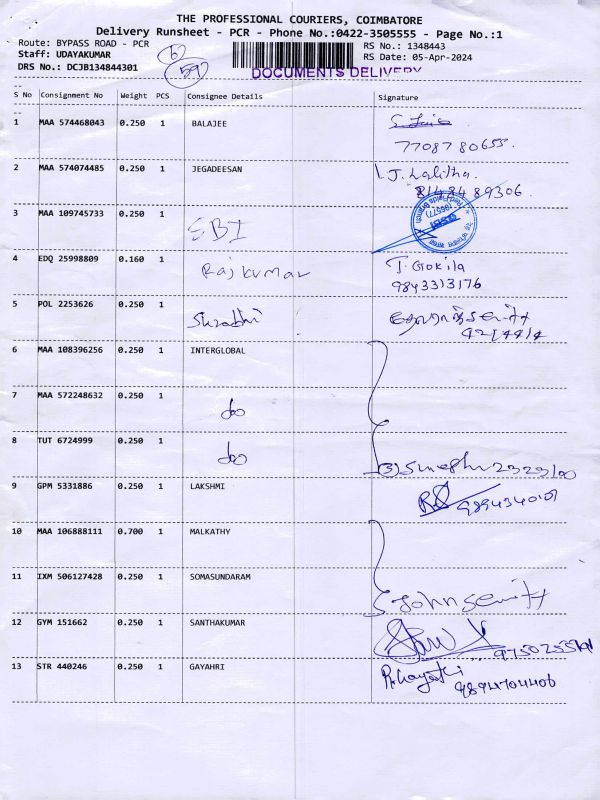 THE PROFESSIONAL COURIERS, COIMBATORE
Delivery Runsheet - PCR - Phone No.:0422-3505555 - Page No.:1
Route: BYPASS ROAD - PCR
RS No.: 1348443
Staff: UDAYAKUMAR
RS Date: 05-Apr-2024
DRS No.: DCJB134844301
6
59
DOCUMENTS DELIVERY
S No Consignment No Weight PCS Consignee Details Signature
1 MAA 574468043 0.250 1 BALAJEE
7708780655.
2 MAA 574074485 0.250 1 JEGADEESAN J. Lalitha
8148489306.
3 MAA 109745733 0.250 1 SBI
4 EDQ 25998809 0.160 1 Rajkumar T. Gokila
9843313176
5 POL 2253626 0.250 1
6 MAA 108396256 0.250 1 INTERGLOBAL
7 MAA 572248632 0.250 1 do
8 TUT 6724999 0.250 1 do
(3)
9 GPM 5331886 0.250 1 LAKSHMI
10 MAA 106888111 0.700 1 MALKATHY
11 IXM 506127428 0.250 1 SOMASUNDARAM
12 GYM 151662 0.250 1 SANTHAKUMAR
13 STR 440246 0.250 1 GAYAHRI R. Gayathi
9894704406